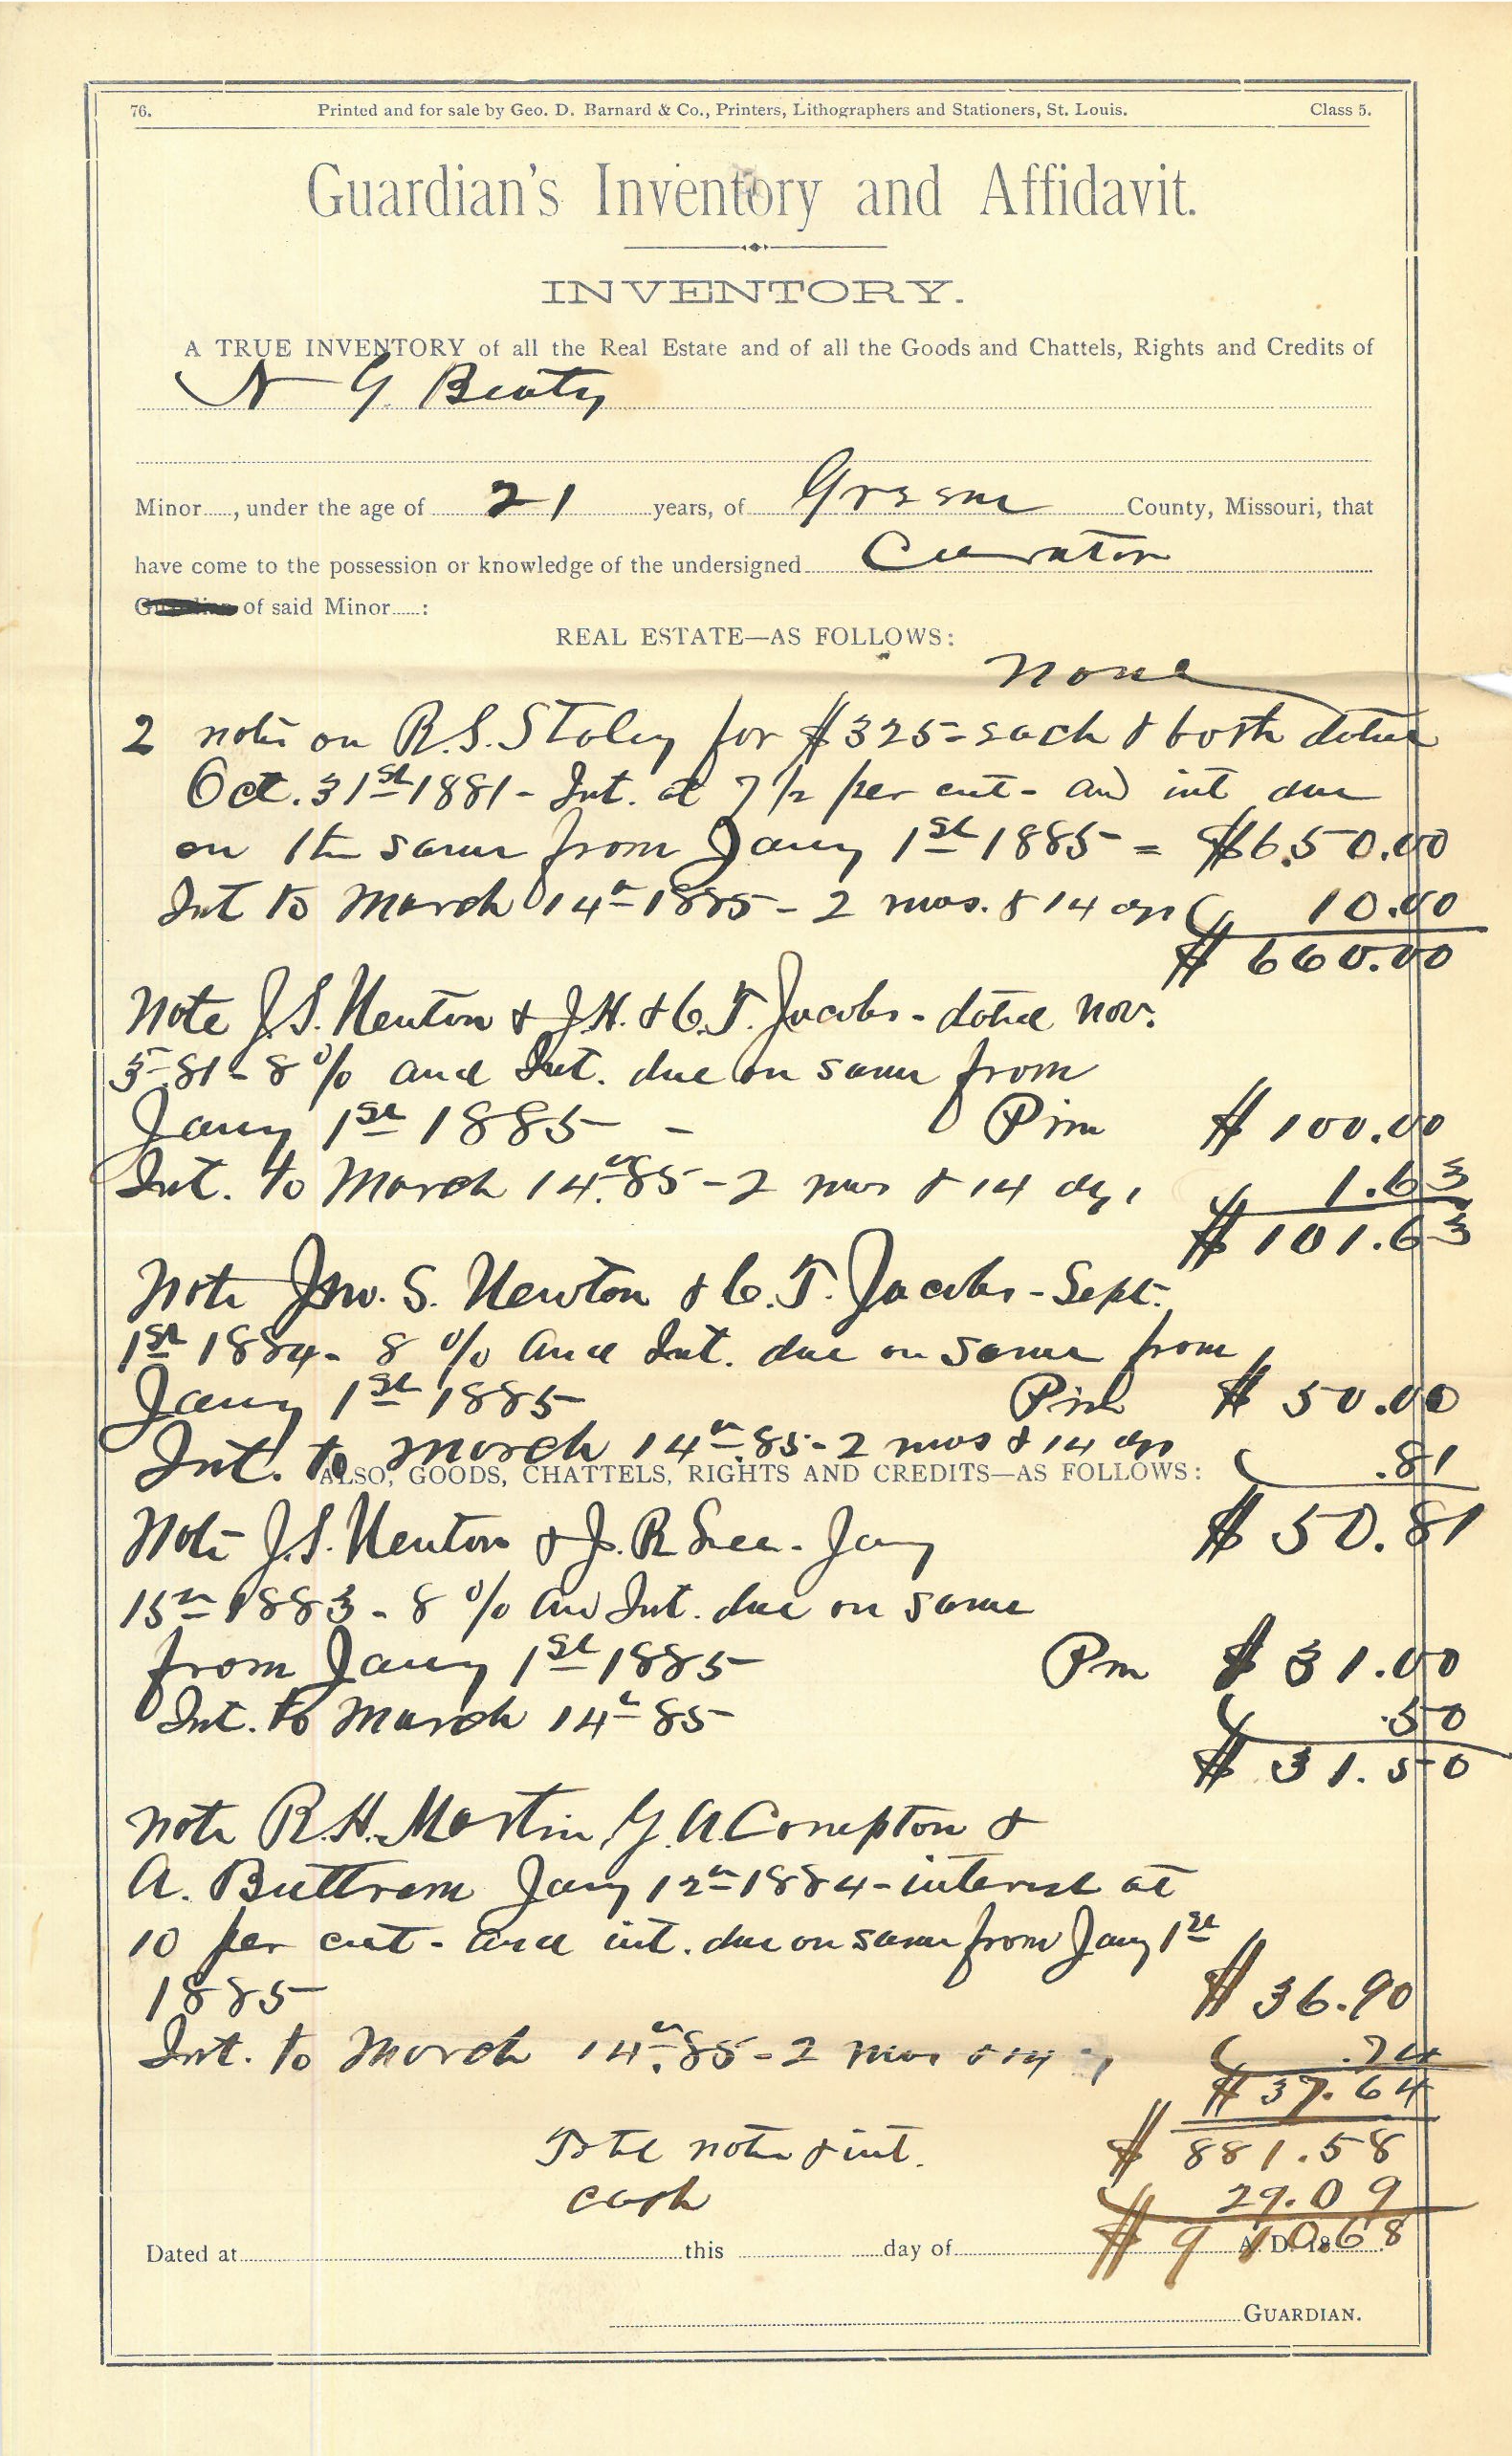 76. Printed and for sale by Geo. D. Barnard & Co., Printers, Lithographers and Stationers, St. Louis. Class 5.
Guardian's Inventory and Affidavit.
INVENTORY.
A TRUE INVENTORY of all the Real Estate and of all the Goods and Chattels, Rights and Credits of
N G. Beaty
Minor....., under the age of 21 years, of Greene County, Missouri, that
have come to the possession or knowledge of the undersigned Curator
Guardian of said Minor.....:
REAL ESTATE—AS FOLLOWS:
None
2 notes on R.S. Staley for $325= each & both dated
Oct. 31st 1881 - Int. at 7 1/2 per cent - and int due
on the same from Jany 1st 1885 = $650.00
Int to March 14th 1885 - 2 mos. & 14 dys 10.00
$ 660.00
Note J.S. Newton & J.H. & C.T. Jacobs - dated Nov.
5-81 - 8 % and Int. due on same from
Jany 1st 1885 - Prin $ 100.00
Int. to March 14th 85 - 2 mos & 14 dys 1.63
$ 101.63
Note Jno. S. Newton & C.T. Jacobs - Sept.
1st 1884 - 8 % and Int. due on same from
Jany 1st 1885 Prin $ 50.00
Int. to March 14th 85 - 2 mos & 14 dys .81
ALSO, GOODS, CHATTELS, RIGHTS AND CREDITS—AS FOLLOWS:
$ 50.81
Note J.S. Newton & J.R. - Jany
15th 1883 - 8 % and Int. due on same
from Jany 1st 1885 Prn $ 31.00
Int. to March 14th 85 .50
$ 31.50
Note R.H. Martin, G.A. Compton &
A. Buttram Jany 12th 1884 - interest at
10 per cent - and int. due on same from Jany 1st
1885 $ 36.90
Int. to March 14th 85 - 2 mos & 14 .74
$ 37.64
Total notes & int. $ 881.58
Cash 29.09
$ 910.68
Dated at this day of A. D. 18
GUARDIAN.